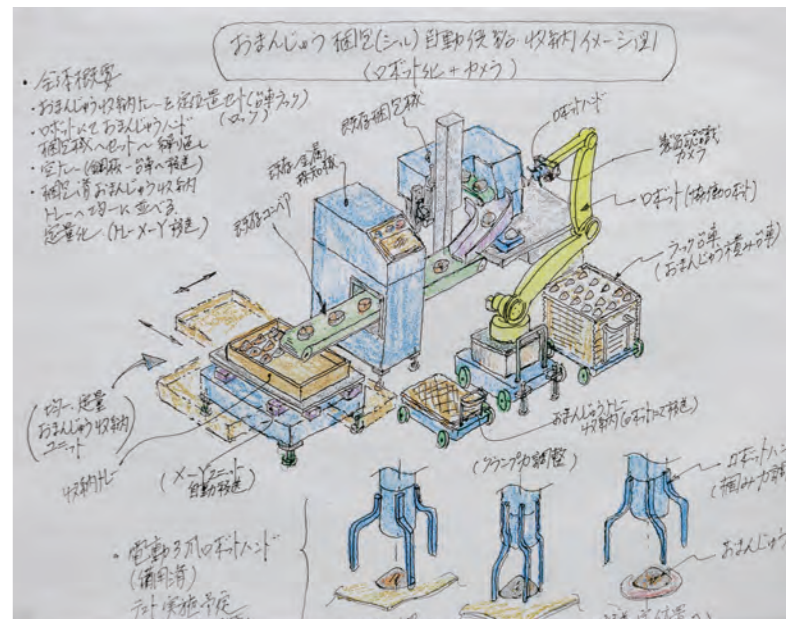 おまんじゅう梱包(シール)自動供給・収納イメージ図1
(ロボット化+カメラ)
・全体概要
・おまんじゅう収納トレーを定位置セット(台車ラック)
(ロック)
・ロボットにておまんじゅうハンド
梱包機へセット〜繰り返し
・空トレー
・梱包済おまんじゅう収納
トレーへ均一に並べる
定量化(トレーX-Y移送)
既存梱包機
ロボットハンド
カメラ
既存金属
検知機
ロボット(協働ロボット)
既存コンベア
ラック台車
(おまんじゅう積み台車)
均一、定量
おまんじゅう収納
ユニット
収納トレー
(X-Yユニット
自動移送)
おまんじゅうトレー
収納(ロボットにて移送)
(グランプ力調整)
ロボットハン
(掴み力調
おまんじゅう
・電動3爪ロボットハンド
(備用済)
テスト実施予定